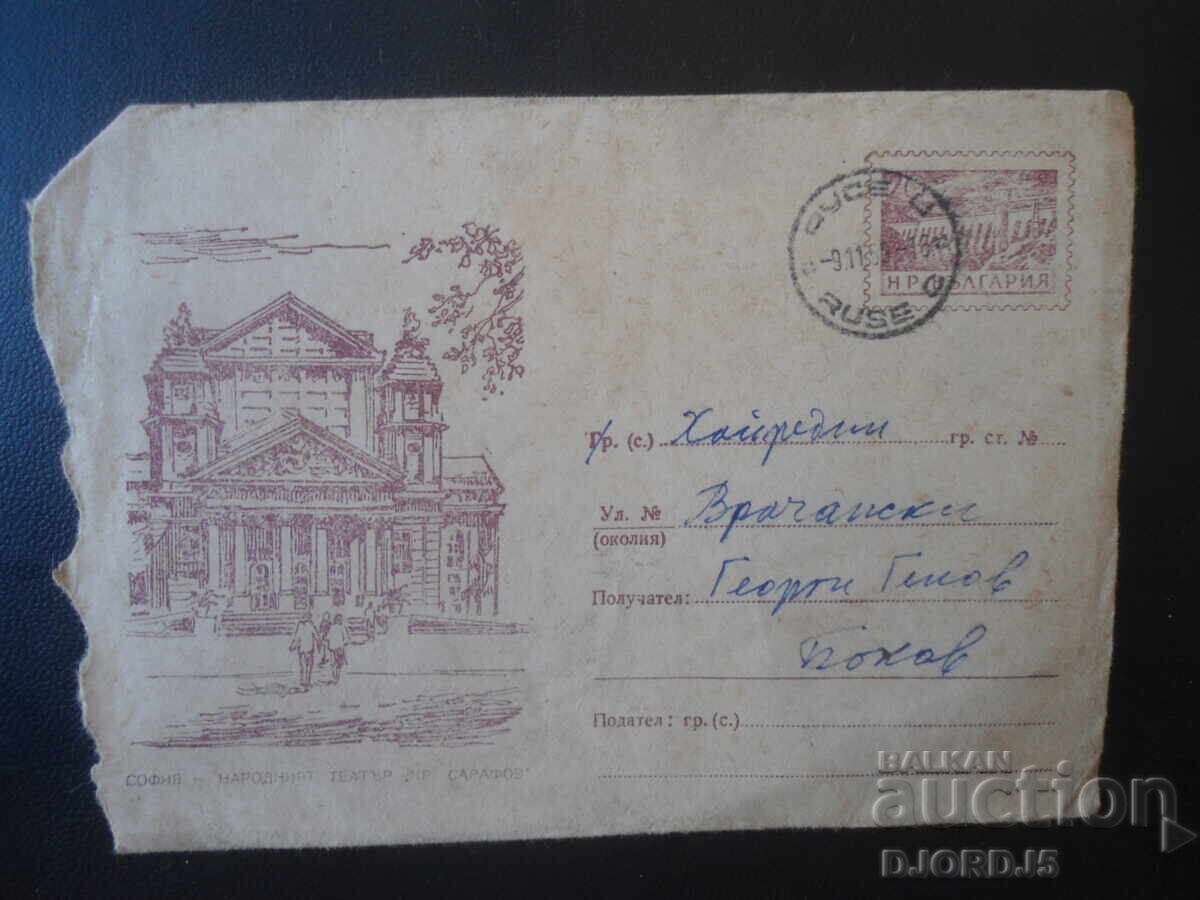 РУСЕ Ц
-9.11.
RUSE
Н Р БЪЛГАРИЯ
Гр. (с.) Хайредин гр. ст. №
Ул. № Врачански
(околия)
Получател: Георги Генов
Боков
Подател: гр. (с.)
СОФИЯ – НАРОДНИЯТ ТЕАТЪР „КР. САРАФОВ“
BALKAN
auction
DJORDJ5